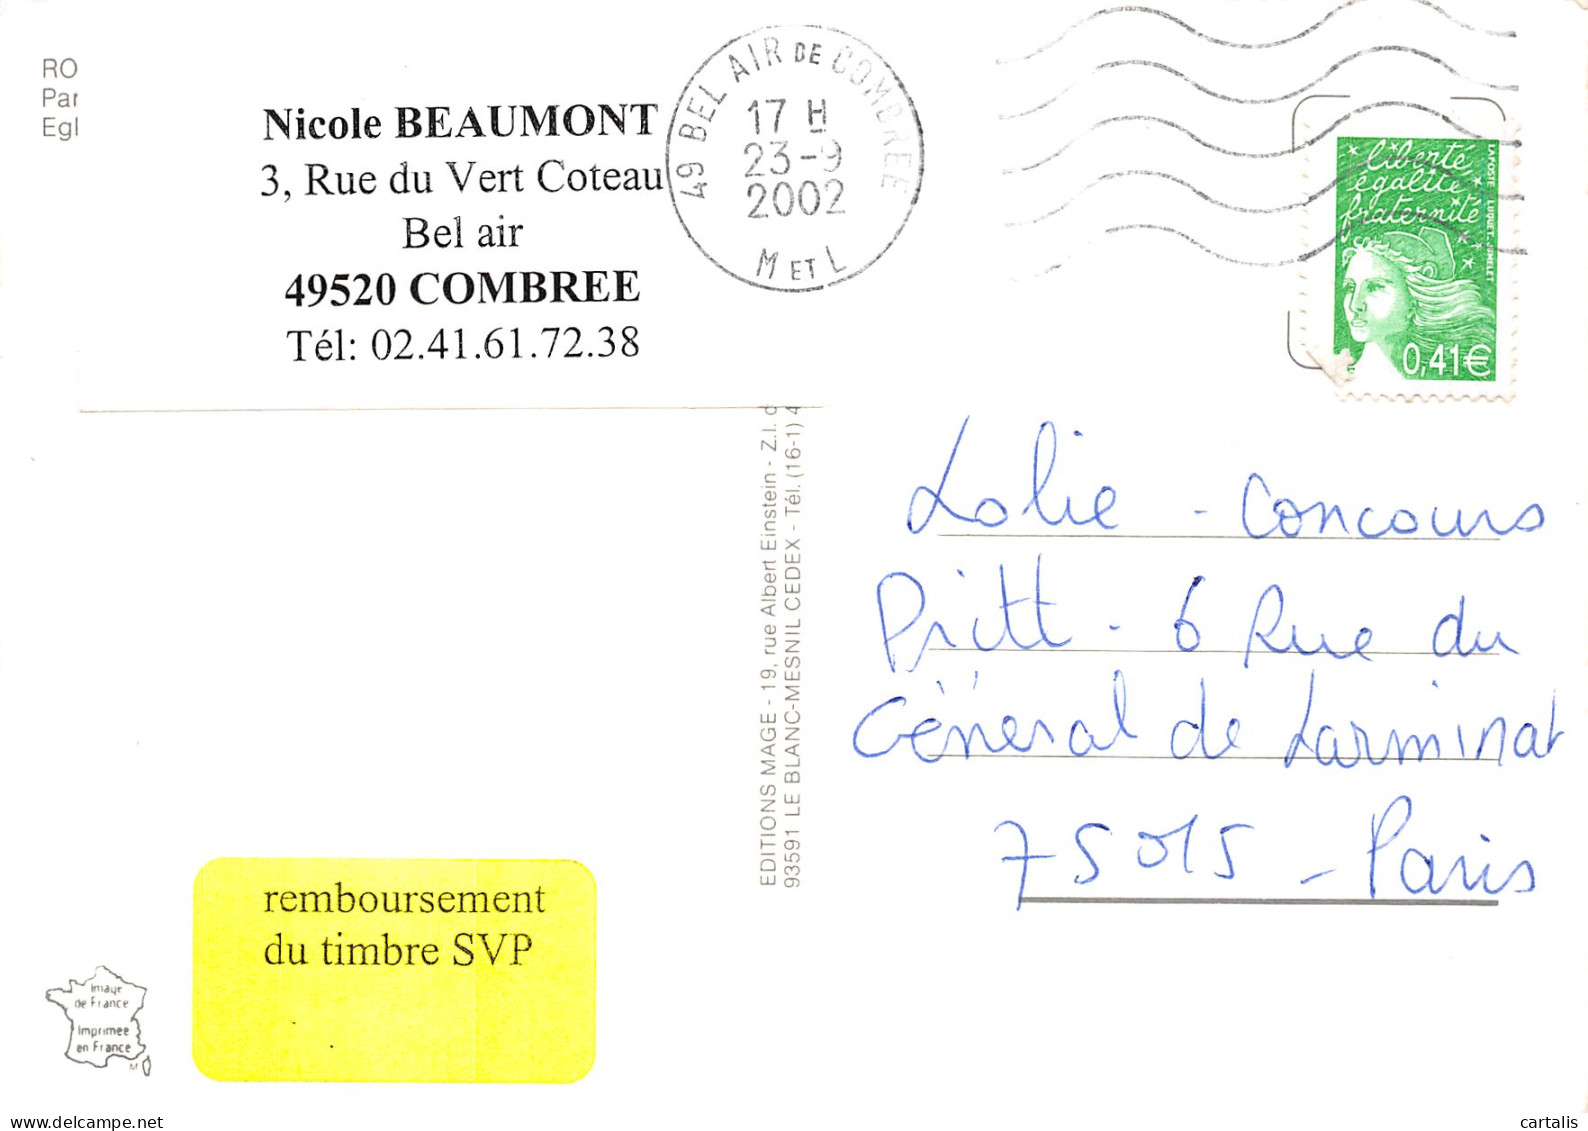 RO
Par
Egl
Nicole BEAUMONT
3, Rue du Vert Coteau
Bel air
49520 COMBREE
Tél: 02.41.61.72.38
49 BEL AIR DE COMBREE
17 H
23-9
2002
M ET L
liberté
égalité
fraternité
LA POSTE LUQUET-JUMELET
0,41€
EDITIONS MAGE - 19, rue Albert Einstein - Z.I.
93591 LE BLANC-MESNIL CEDEX - Tél. (16-1) 4
Lolie - Concours
Pritt - 6 Rue du
Général de Larminat
75015 - Paris
remboursement
du timbre SVP
Image
de France
Imprimée
en France
M
cartalis